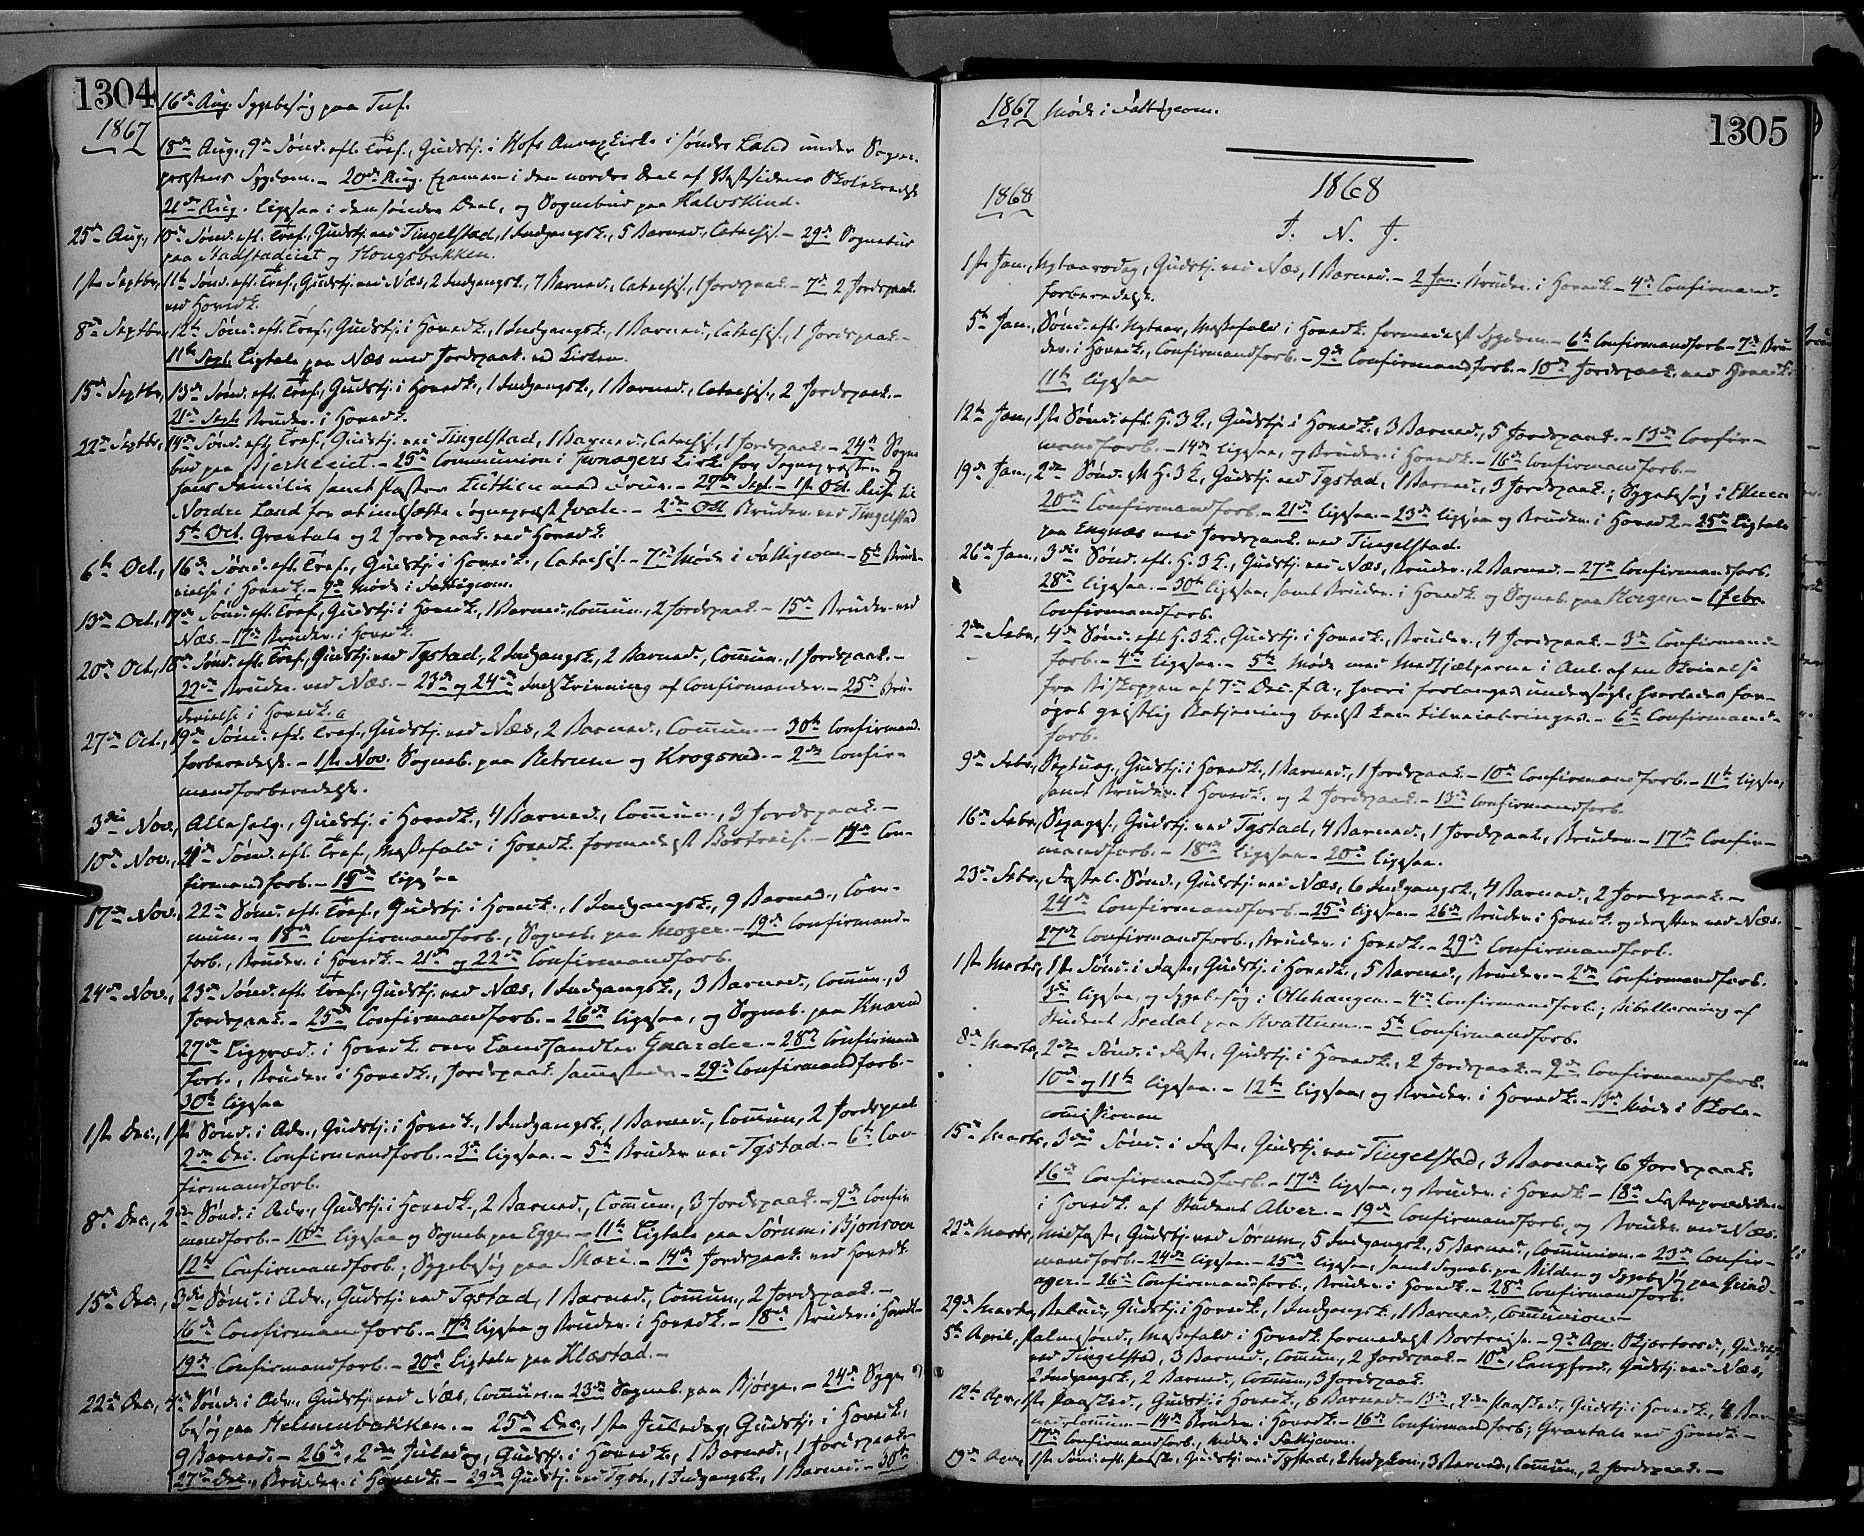 1304
16de Aug. Sygebesøg paa Tuf.
1867
18de Aug., 9de Sønd. eft. Tref., Gudstj. i Hofs Annexkirke i søndre Land under Sogne-
præstens Sygdom. – 20de Aug. Examen i den nordre Deel af Vestsidens Skolekreds
21de Aug. ligesaa i den søndre Deel, og Sognebud paa Halvskind.
25de Aug., 10de Sønd. eft. Tref., Gudstj. ved Tingelstad, 1 Indgangsk., 5 Barned., Catechis. – 29de Sognebud
paa Stadstadeiet og Kongsbakken.
1ste Septbr., 11te Sønd. eft. Tref., Gudstj. ved Næs, 2 Indgangsk., 7 Barned., Catechis., 1 Jordspaak. – 7de 2 Jordspaak.
ved Hovedk.
8de Septbr., 12te Sønd. eft. Tref., Gudstj. i Hovedk., 1 Indgangsk., 1 Barned., Catechis., 1 Jordspaak. –
11te Sept. Ligtale paa Næs med Jordspaak. ved Kirken.
15de Septbr., 13de Sønd. eft. Tref., Gudstj. i Hovedk., 1 Indgangsk., 1 Barned., Catechis., 2 Jordspaak. –
21de Sept. Brudev. i Hovedk.
22de Septbr., 14de Sønd. eft. Tref., Gudstj. ved Tingelstad, 1 Barned., Catechis., 1 Jordspaak. – 24de Sogne-
bud paa Bjerkeeiet. – 25de Communion i Jevnagers Kirke for Sognepræsten og
hans Familie samt Pastor Lütken med Frue. – 27de Sept. – 1ste Oct. Reise til
Nordre Land for at indsætte Sognepræst Hvale. – 2den Oct. Brudev. ved Tingelstad
5te Oct. Gravtale og 2 Jordspaak. ved Hovedk.
6te Oct., 16de Sønd. eft. Tref., Gudstj. i Hovedk., Catechis. – 7de Møde i Fattigcom. – 8de Brude-
vielse i Hovedk. – 9de Møde i Fattigcom.
13de Oct., 17de Sønd. eft. Tref., Gudstj. i Hovedk., 1 Barned., Commun., 2 Jordspaak. – 15de Brudev. ved
Næs. – 17de Brudev. i Hovedk.
20de Oct., 18de Sønd. eft. Tref., Gudstj. ved Tgstad, 2 Indgangsk., 2 Barned., Commun., 1 Jordspaak. –
22de Brudev. ved Næs. – 23de og 24de Indskrivning af Confirmander. – 25de Bru-
devielse i Hovedk.
27de Oct., 19de Sønd. eft. Tref., Gudstj. ved Næs, 2 Barned., Commun. – 30te Confirmand-
forberedelse. – 1ste Nov. Sogneb. paa Retrum og Krogsrud. – 2den Confir-
mandforberedelse.
3die Nov., Allehelg., Gudstj. i Hovedk., 4 Barned., Commun., 3 Jordspaak. –
10de Nov., 21de Sønd. eft. Tref., Messefald i Hovedk. formedelst Bortreise. – 14de Con-
firmandforb. – 15de ligesaa
17de Nov., 22de Sønd. eft. Tref., Gudstj. i Hovedk., 1 Indgangsk., 9 Barned., Com-
mun. – 18de Confirmandforb., Sogneb. paa Moger. – 19de Confirmand-
forb., Brudev. i Hovedk. – 21de og 22de Confirmandforb.
24de Nov., 23de Sønd. eft. Tref., Gudstj. ved Næs, 1 Indgangsk., 3 Barned., Commun., 3
Jordspaak. – 25de Confirmandforb. – 26de ligesaa, og Sogneb. paa Knarud
27de Ligpræd. i Hovedk. over Landhandler Gaarder. – 28de Confirmand-
forb., Brudev. i Hovedk., Jordspaak. sammesteds. – 29de Confirmandforb. –
30te ligesaa
1ste Dec., 1ste Sønd. i Adv., Gudstj. i Hovedk., 1 Indgangsk., 1 Barned., Commun., 2 Jordspaak.
2den Dec. Confirmandforb. – 3die ligesaa. – 5te Brudev. ved Tgstad. – 6te Con-
firmandforb.
8de Dec., 2den Sønd. i Adv., Gudstj. i Hovedk., 2 Barned., Commun., 3 Jordspaak. – 9de Confir-
mandforb. – 10de ligesaa og Sogneb. paa Egge. – 11te Ligtale paa Sørum i Bjoneroa
12te Confirmandforb.; Sygebesøg paa Skari. – 14de Jordspaak. ved Hovedk.
15de Dec., 3die Sønd. i Adv., Gudstj. ved Tgstad, 1 Barned., Commun., 2 Jordspaak. –
16de Confirmandforb. – 17de ligesaa og Brudev. i Hovedk. – 18de Brudev. i Hovedk. –
19de Confirmandforb. – 20de Ligtale paa Klæstad. –
22de Dec., 4de Sønd. i Adv., Gudstj. ved Næs, Commun. – 23de Sogneb. paa Bjørge. – 24de Syge-
besøg paa Helmenbakken. – 25de Dec., 1ste Juledag, Gudstj. i Hovedk.,
9 Barned. – 26de, 2den Juledag, Gudstj. i Hovedk., 1 Barned., 1 Jordspaak.
27de Dec., Brudev. i Hovedk. – 29de Gudstj. ved Tgst., 1 Indgangsk., 1 Barned. – 30te
1305
1867 Møde i Fattigcom.
1868
1868
I. N. J.
1ste Jan., Nytaarsdag, Gudstj. ved Næs, 1 Barned. – 2 Jan. Brudev. i Hovedk. – 4de Confirmand-
forberedelse.
5te Jan., Sønd. eft. Nytaar, Messefald i Hovedk. formedelst Sygdom. – 6te Confirmandforb. – 7de Bru-
dev. i Hovedk., Confirmandforb. – 9de Confirmandforb. – 10de Jordspaak. ved Hovedk. –
11te ligesaa
12te Jan., 1ste Sønd. eft. H. 3 K., Gudstj. i Hovedk., 3 Barned., 5 Jordspaak. – 13de Confir-
mandforb. – 14de ligesaa, og Brudev. i Hovedk. – 16de Confirmandforb. –
19de Jan., 2den Sønd. eft. H. 3 K., Gudstj. ved Tgstad, 1 Barned., 3 Jordspaak.; Sygebesøg i
20de Confirmandforb. – 21de ligesaa. – 23de ligesaa og Brudev. i Hovedk. – 25de Ligtale
paa Engnæs med Jordspaak. ved Tingelstad.
26de Jan., 3die Sønd. eft. H. 3 K., Gudstj. ved Næs, Brudev., 2 Barned. – 27de Confirmandforb.
28de ligesaa. – 30te ligesaa, samt Brudev. i Hovedk. og Sogneb. paa Horgen. – 1 Febr.
Confirmandforb.
2den Febr., 4de Sønd. eft. H. 3 K., Gudstj. i Hovedk., Brudev., 4 Jordspaak. – 3die Confirmand-
forb. – 4de ligesaa. – 5te Møde med Medhjælperne i Anl. af en Skrivelse
fra Biskoppen af 7de Dec. f. A., hvori forlanges undersøgt, hvorledes for-
øget geistlig Betjening bedst kan tilveiebringes. – 6te Confirmand-
forb.
9de Febr., Septuag., Gudstj. i Hovedk., 1 Barned., 1 Jordspaak. – 10de Confirmandforb. – 11te ligesaa,
samt Brudev. i Hovedk. og 2 Jordspaak. – 13de Confirmandforb.
16de Febr., Sexages., Gudstj. ved Tgstad, 4 Barned., 1 Jordspaak., Brudev. – 17de Confir-
mandforb. – 18de ligesaa – 20de ligesaa.
23de Febr., Fastel. Sønd., Gudstj. ved Næs, 6 Indgangsk., 4 Barned., 2 Jordspaak. –
24de Confirmandforb. – 25de ligesaa. – 26de Brudev. i Hovedk. og derefter ved Næs.
27de Confirmandforb., Brudev. i Hovedk. – 29de Confirmandforb.
1ste Marts, 1ste Sønd. i Faste, Gudstj. i Hovedk., 5 Barned., Brudev. – 2den Confirmandforb.
3die ligesaa, og Sygebesøg i Ollehaugen. – 4de Confirmandforb.; Bibellæsning af
Student Bredal paa Hvattum. – 5te Confirmandforb.
8de Marts, 2den Sønd. i Faste, Gudstj. i Hovedk., 2 Jordspaak. – 9de Confirmandforb.
10de og 11te ligesaa. – 12te ligesaa, og Brudev. i Hovedk. – 13de Møde i Skole-
commissionen
15de Marts, 3die Sønd. i Faste, Gudstj. ved Tingelstad, 3 Barned., 6 Jordspaak.
16de Confirmandforb. – 17de ligesaa, og Brudev. i Hovedk. – 18de Fasteprædiken
i Hovedk. af Student Alver. – 19de Confirmandforb., og Brudev. ved Næs.
22de Marts, Midfaste, Gudstj. ved Sørum, 5 Indgangsk., 5 Barned., Communion. – 23de Confir-
mandforb. – 24de ligesaa – 25de ligesaa, samt Sogneb. paa Bilden og Sygebesøg paa Grind-
ager. – 26de Confirmandforb., Brudev. i Hovedk. – 28de Confirmandforb.
29de Marts, Gudstj. i Hovedk., 1 Indgangsk., 1 Barned., Communion. –
5te April, Palmesønd., Messefald i Hovedk. formedelst Bortreise. – 9de Apr. Skjertorsd., Gudstj.
ved Tingelstad, 3 Barned., Commun., 2 Jordspaak. – 10de, Langfred., Gudstj. ved Næs,
2 Indgangsk., 2 Barned., Commun., 3 Jordspaak.
12te Apr., 1ste Paasked., Gudstj. i Hovedk., 6 Barned. – 13de, 2den Paasked., Gudstj. i Hovedk., 4 Bar-
ned., Commun. – 14de Brudev. i Hovedk. – 16de Confirmandforb.; Gravtale ved Hovedk. –
17de Confirmandforb., Møde i Fattigcom.
19de Apr., 1ste Sønd. eft. Paaske, Gudstj. ved Tgstad, 2 Indgkon., 3 Barned., Commun., 2 Jordspaak. –